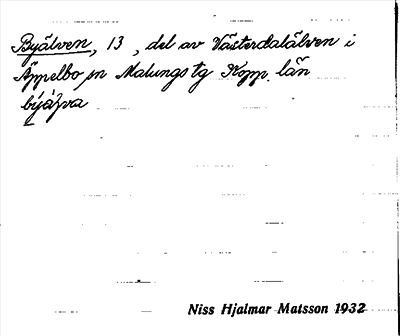 Byälven, 13, del av Västerdalälven i
Äppelbo sn Malungs tg Kopp. län
býàʒva
Niss Hjalmar Matsson 1932